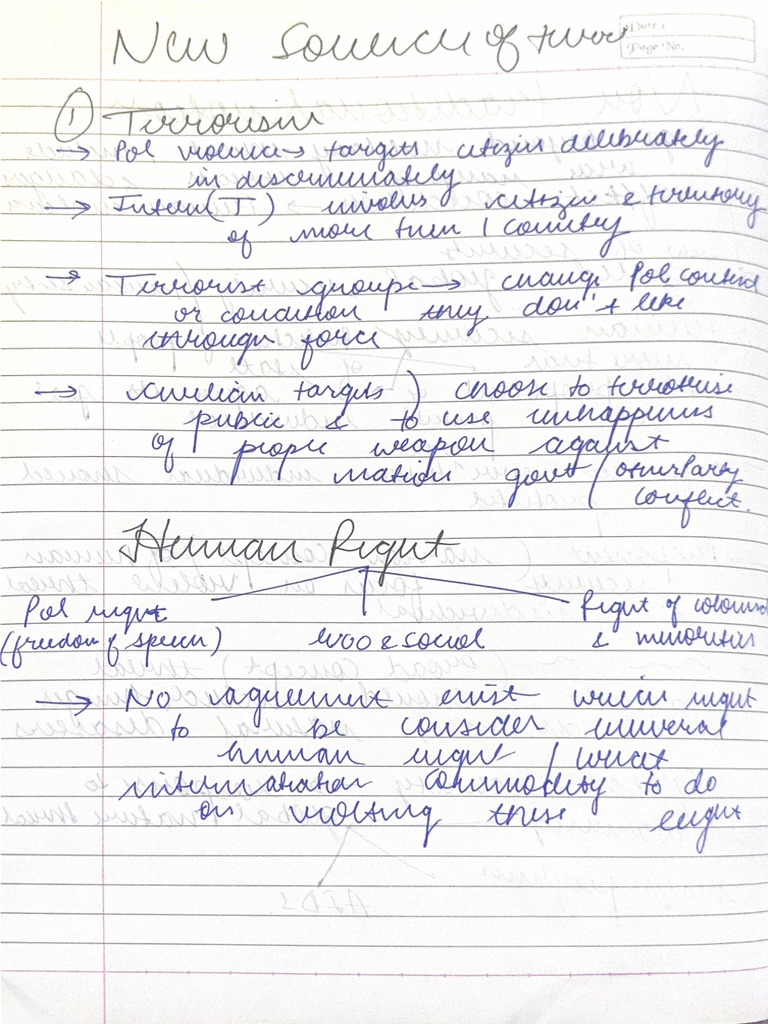 New Source of threat
Date:
Page No.
① Terrorism
→ Pol violence → targets citizen deliberately
indiscriminately
→ Intern(T) involves citizen & territory
of more then 1 country
→ Terrorist groups → change Pol context
or condition they don't like
through force
→ civilian targets) choose to terrorise
public & to use unhappiness
of people weapon against
nation govt / other Party
conflict.
Human Right
Pol right
(freedom of speech)
eco & social
Right of colonised
& minorities
→ No agreement exist which right
to be consider univeral
human right / what
internatation commodity to do
on violting these right
AIDS